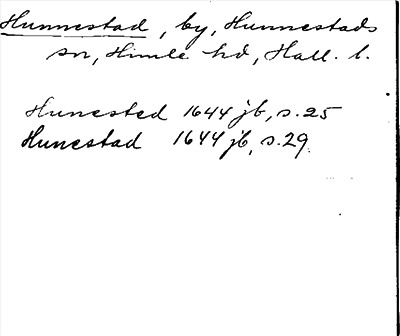 Hunnestad, by, Hunnestads
sn, Himle hd, Hall. l.
Hunested 1644 jb, s. 25
Hunestad 1644 jb, s. 29.